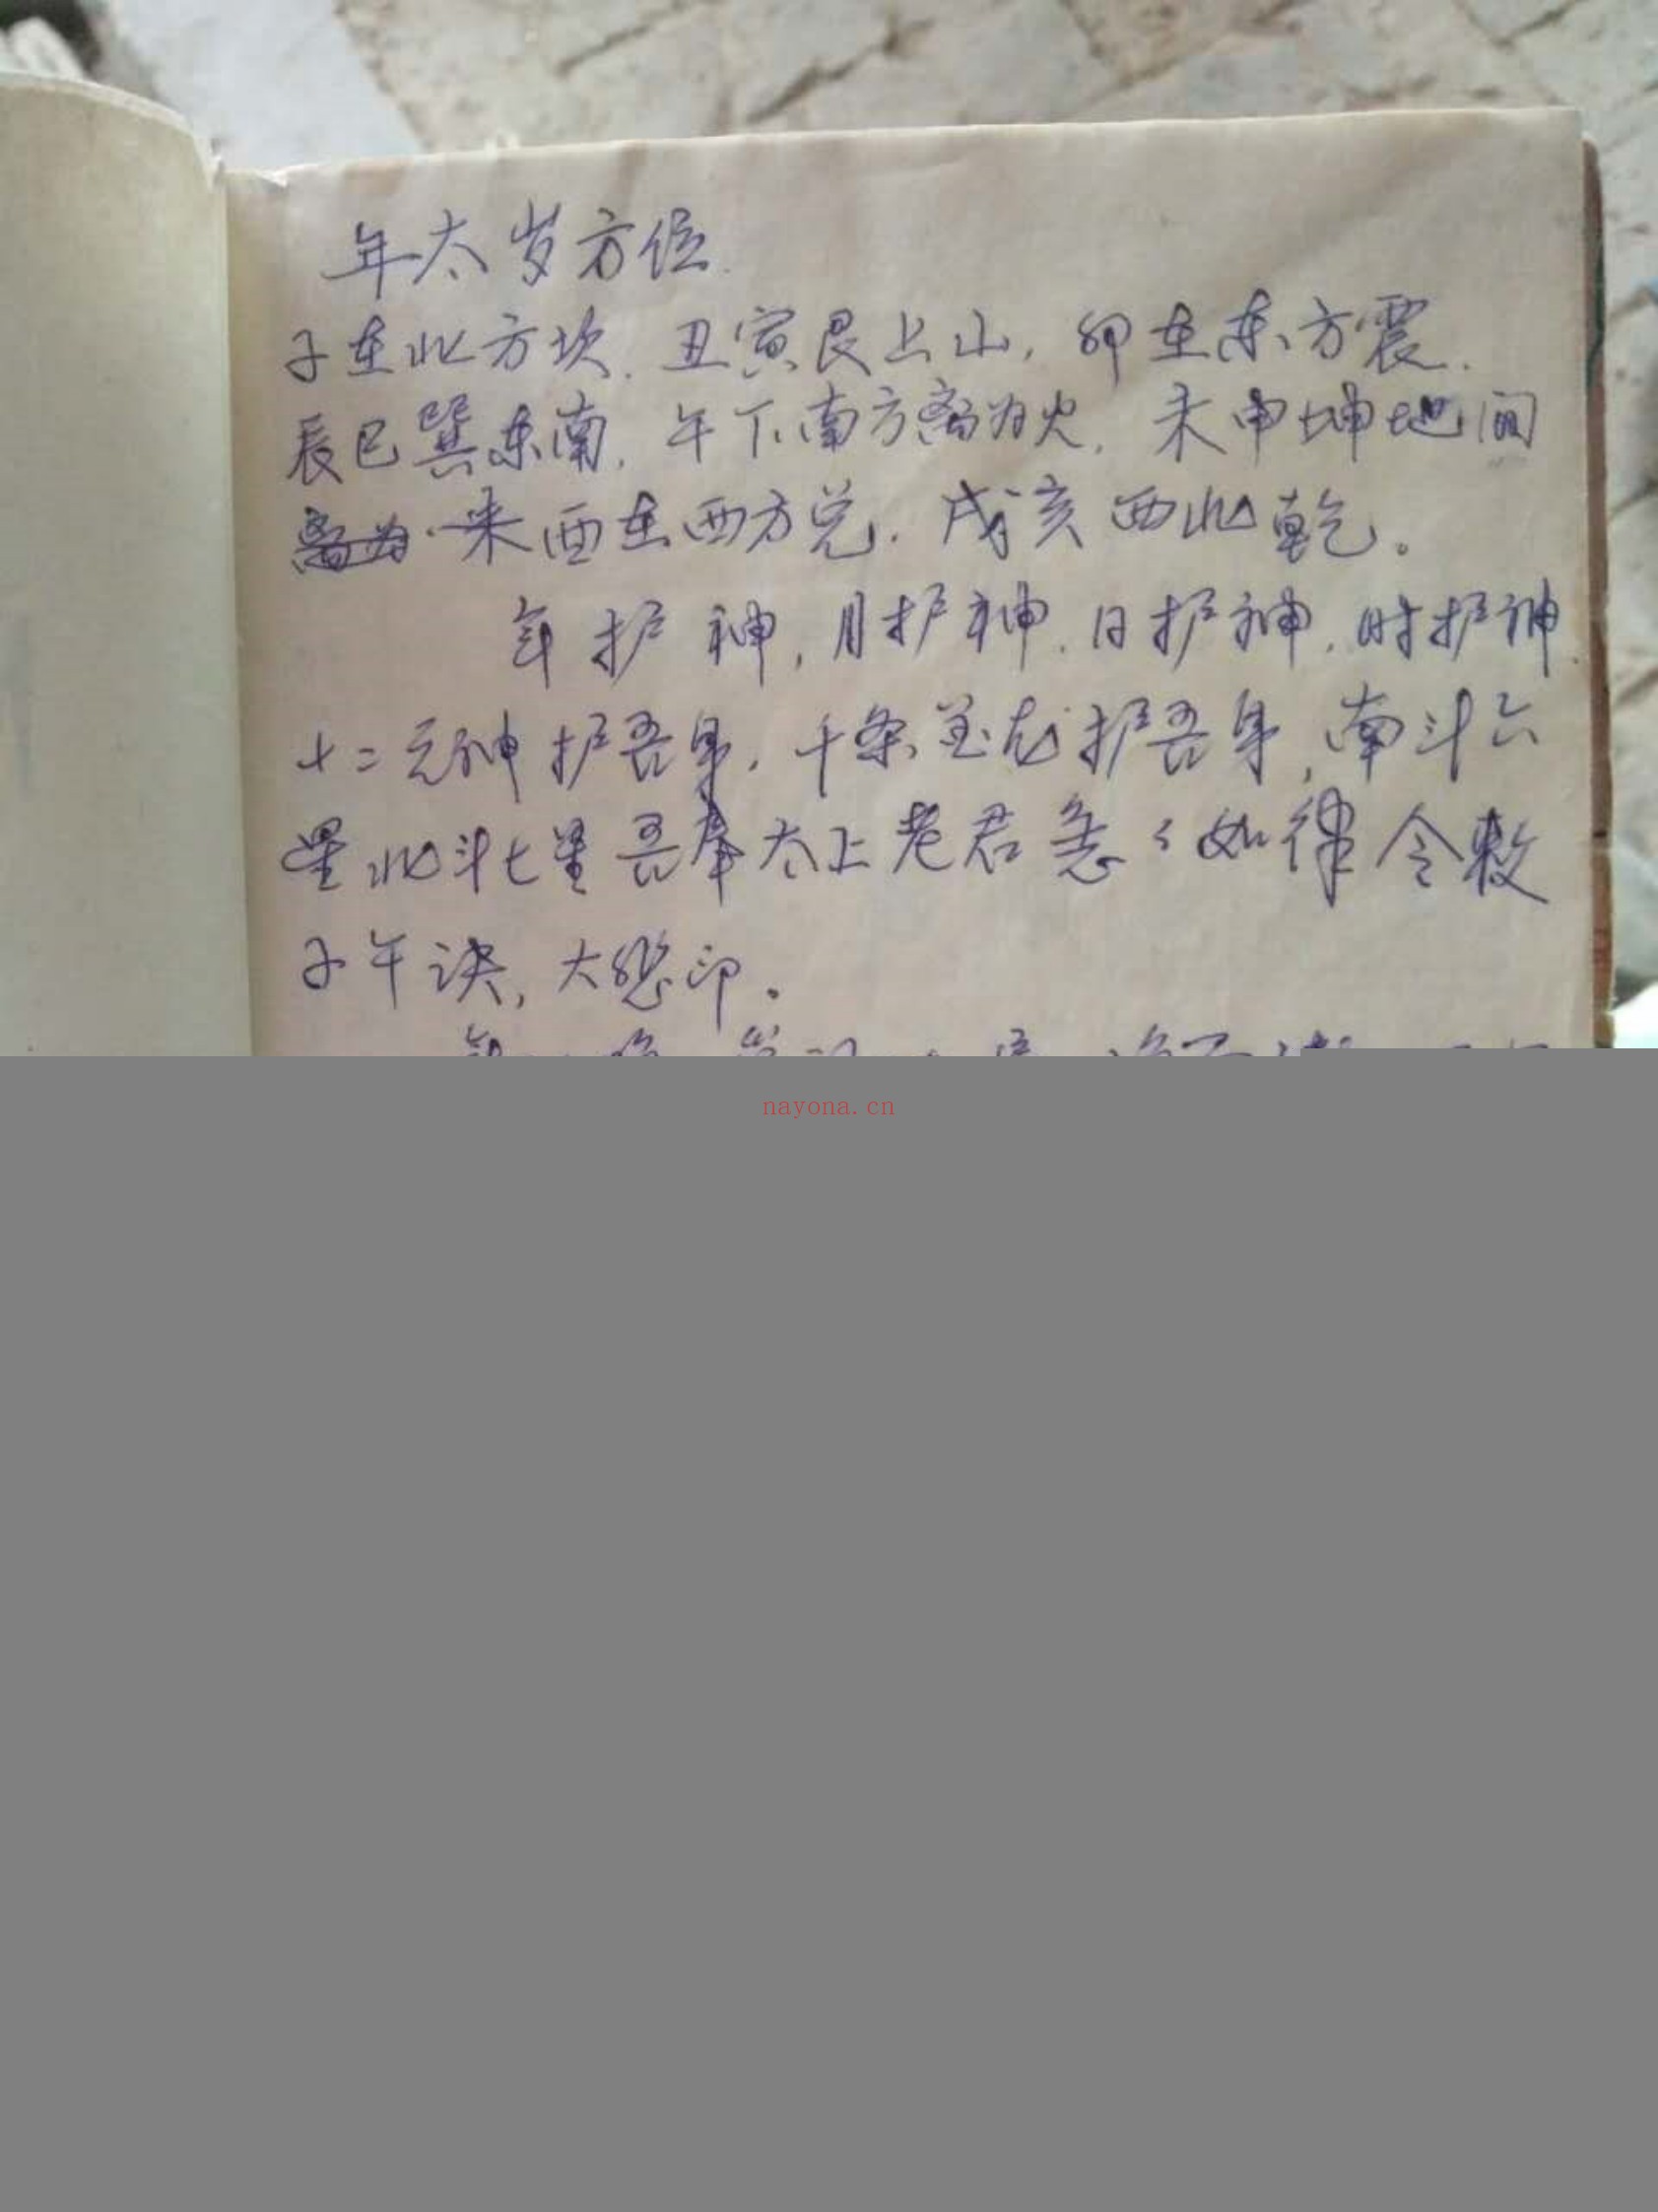 年太岁方位.
子在北方坎.丑寅艮上山,卯在东方震.
辰巳巽东南.午下南方离为火.未申坤地间
离为来酉在西方兑.戌亥西北乾。
年护神,月护神.日护神.时护神.
十二元神护吾身.千条金龙护吾身,南斗六
星北斗七星吾奉太上老君急々如律令敕
子午诀,大印。
nayona.cn